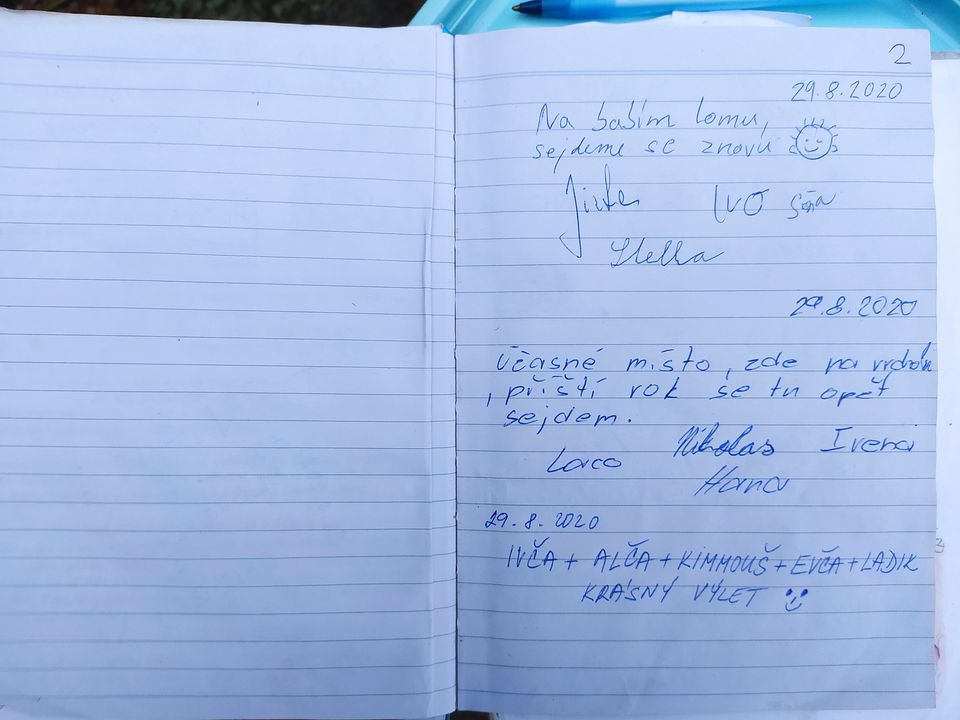 2
29.8.2020
Na babím lomu,
sejdeme se znovu
Jirka Ivo Soňa
Stella
29.8.2020
účasné místo, zde na vrchol
, příští rok se tu opět
sejdem.
Laco Nikolas Ivena
Hana
29.8.2020
IVČA + ALČA + KIMMOUŠ + EVČA + LADIK
KRÁSNÝ VÝLET
3